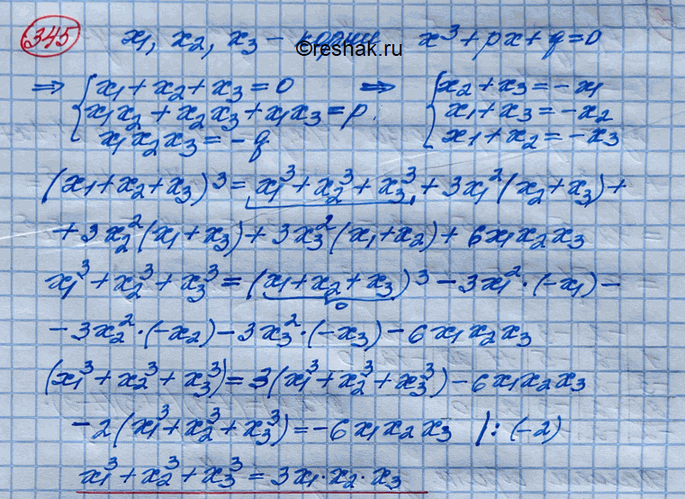 345 x₁, x₂, x₃ – корни x³+px+q=0
©reshak.ru
⇒ { x₁+x₂+x₃=0 ⇒ { x₂+x₃=-x₁
x₁x₂+x₂x₃+x₁x₃=p. x₁+x₃=-x₂
x₁x₂x₃=-q x₁+x₂=-x₃
(x₁+x₂+x₃)³=x₁³+x₂³+x₃³+3x₁²(x₂+x₃)+
+3x₂²(x₁+x₃)+3x₃²(x₁+x₂)+6x₁x₂x₃
x₁³+x₂³+x₃³=(x₁+x₂+x₃)³-3x₁²·(-x₁)-
0
-3x₂²·(-x₂)-3x₃²·(-x₃)-6x₁x₂x₃
(x₁³+x₂³+x₃³)=3(x₁³+x₂³+x₃³)-6x₁x₂x₃
-2(x₁³+x₂³+x₃³)=-6x₁x₂x₃ |:(-2)
x₁³+x₂³+x₃³=3x₁·x₂·x₃